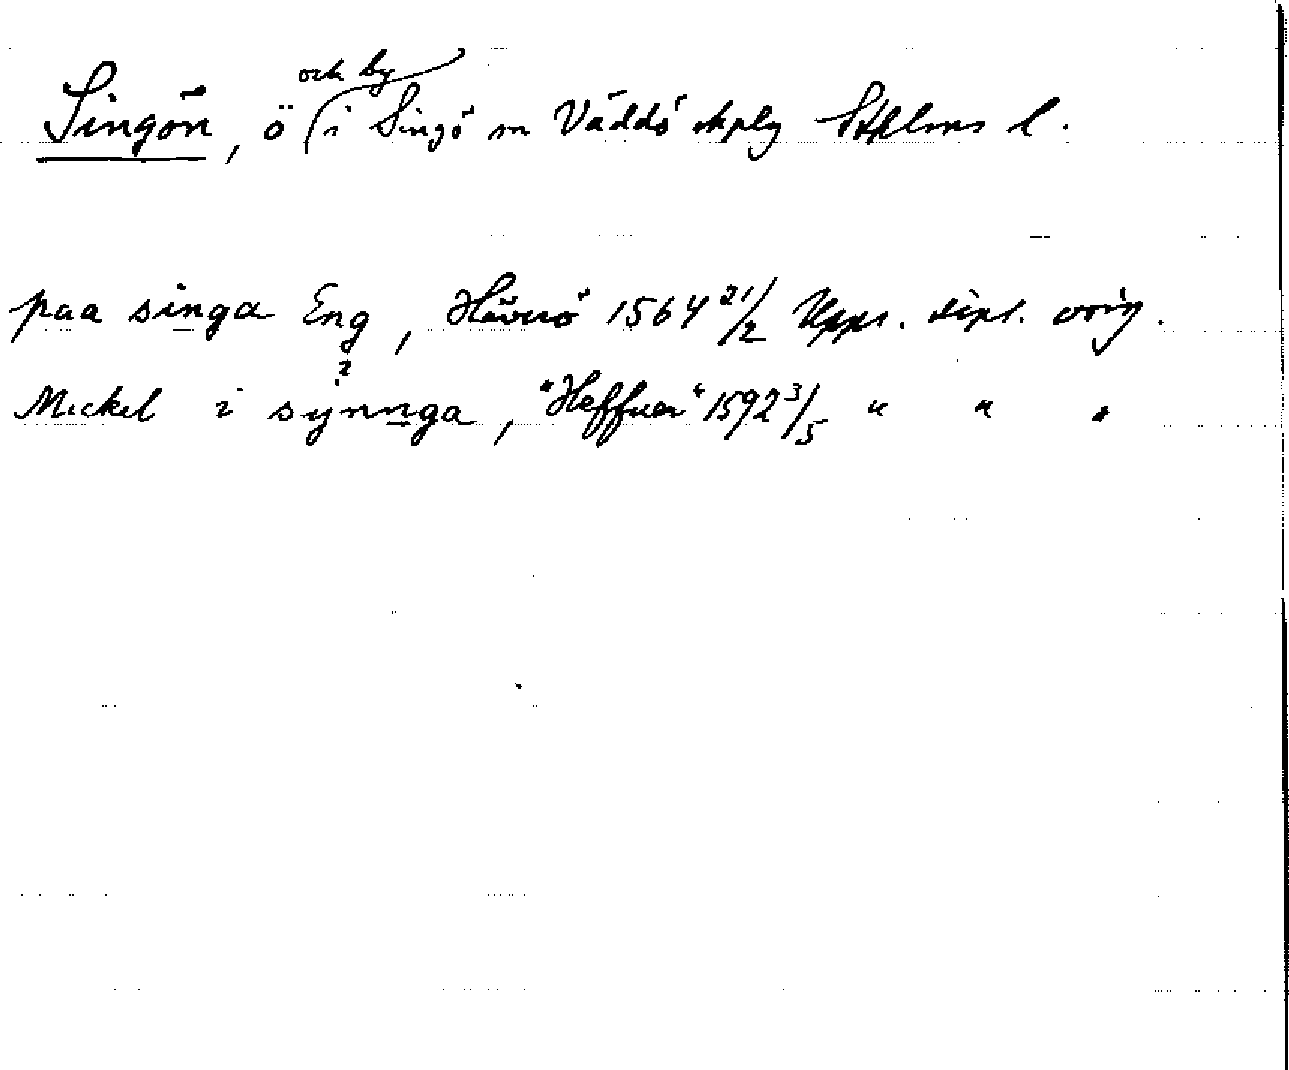 Singön, ö och by i Singö sn Väddö skplg Sthlms l.
paa singa Eng, Häverö 1564 21/2 Upps. dipl. orig.
Mickel i synnga, "Heffuer" 1592 3/5 " " "